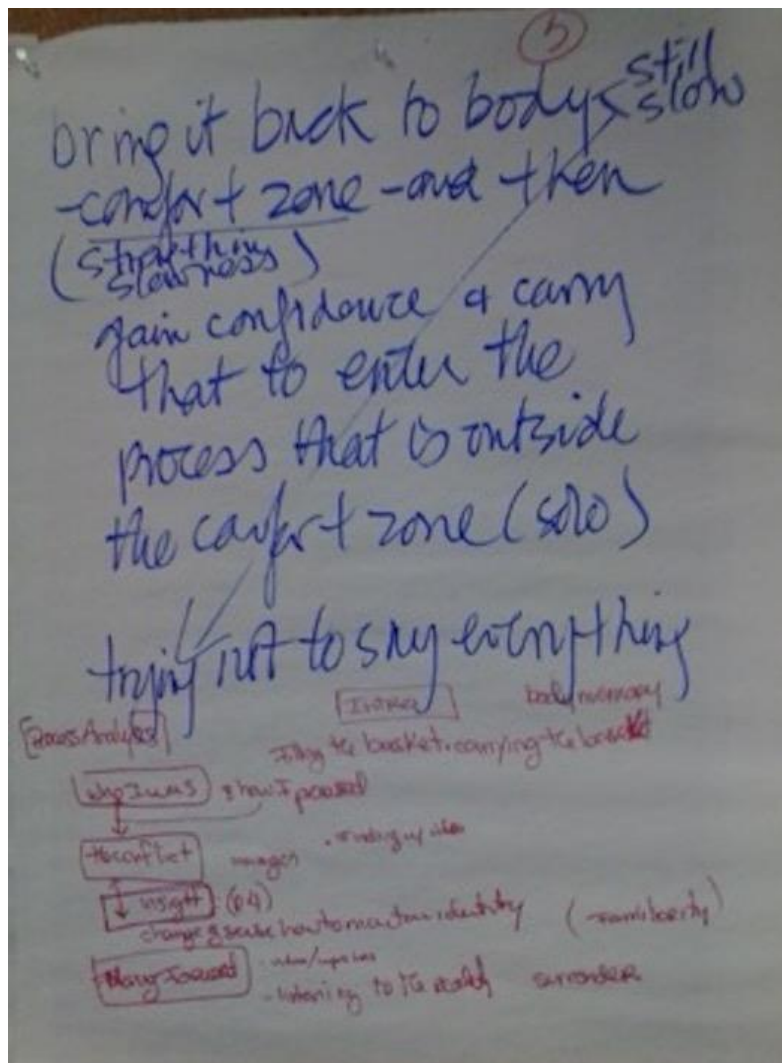 5
bring it back to body < still slow
-comfort zone -and then
(slowness)
gain confidence & carry
that to enter the
process that is outside
the comfort zone (solo)
trying not to say everything
body memory
[Process Analysis]
the basket. carrying the basket
who I was & how I
the conflict images
insight: (64)
change & how to identity (familiarity)
Forward
- listening to the surrender